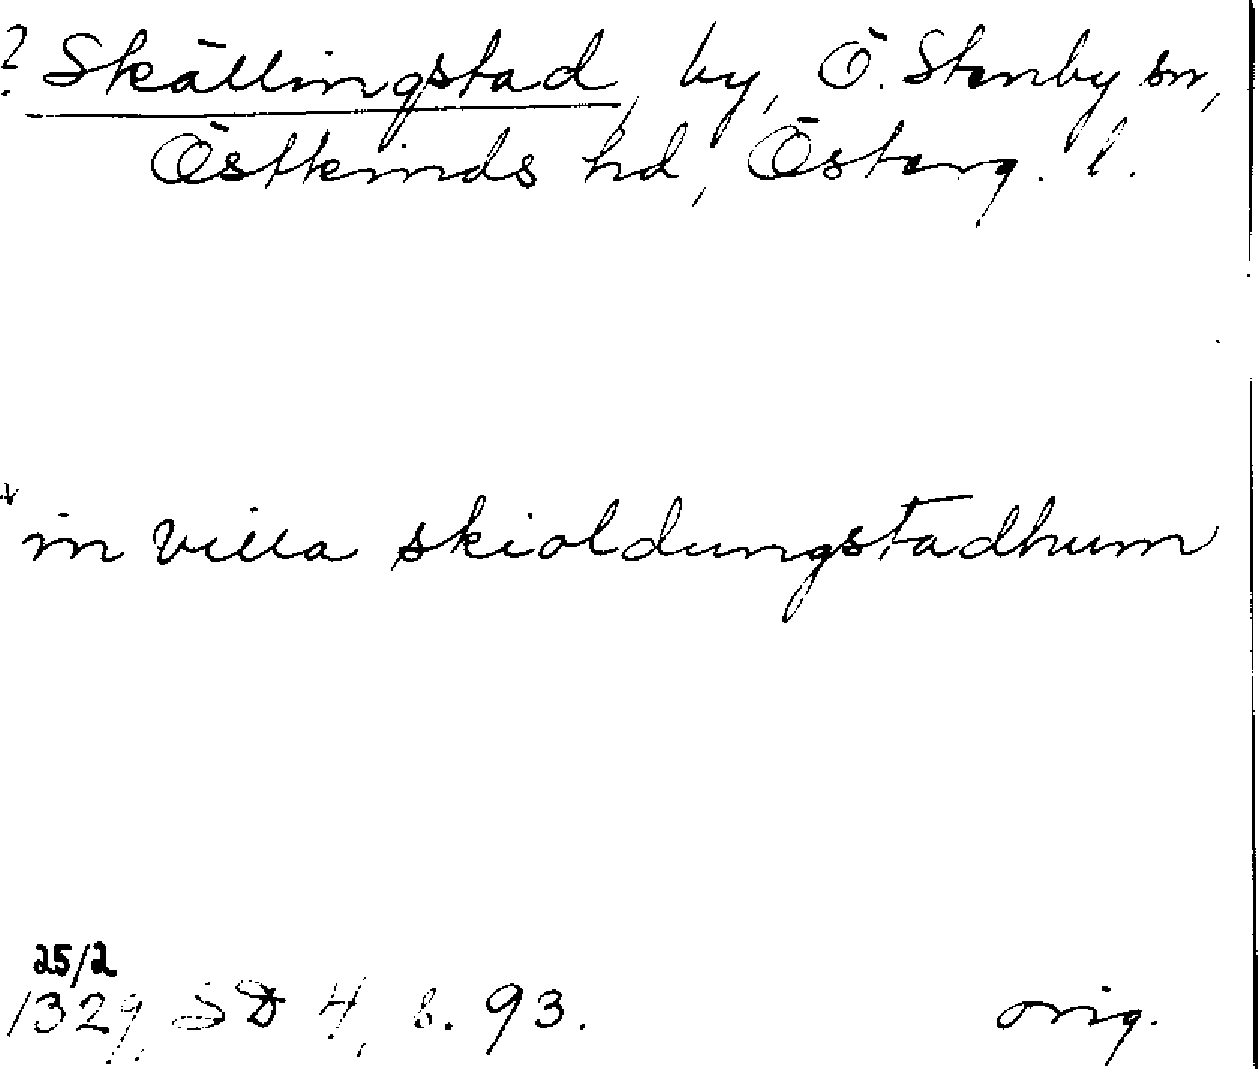 ? Skällingstad, by, Ö. Stenby sn,
Östkinds hd, Österg. l.
in villa skioldungstadhum
25/2
1329, SD 4, s. 93. orig.